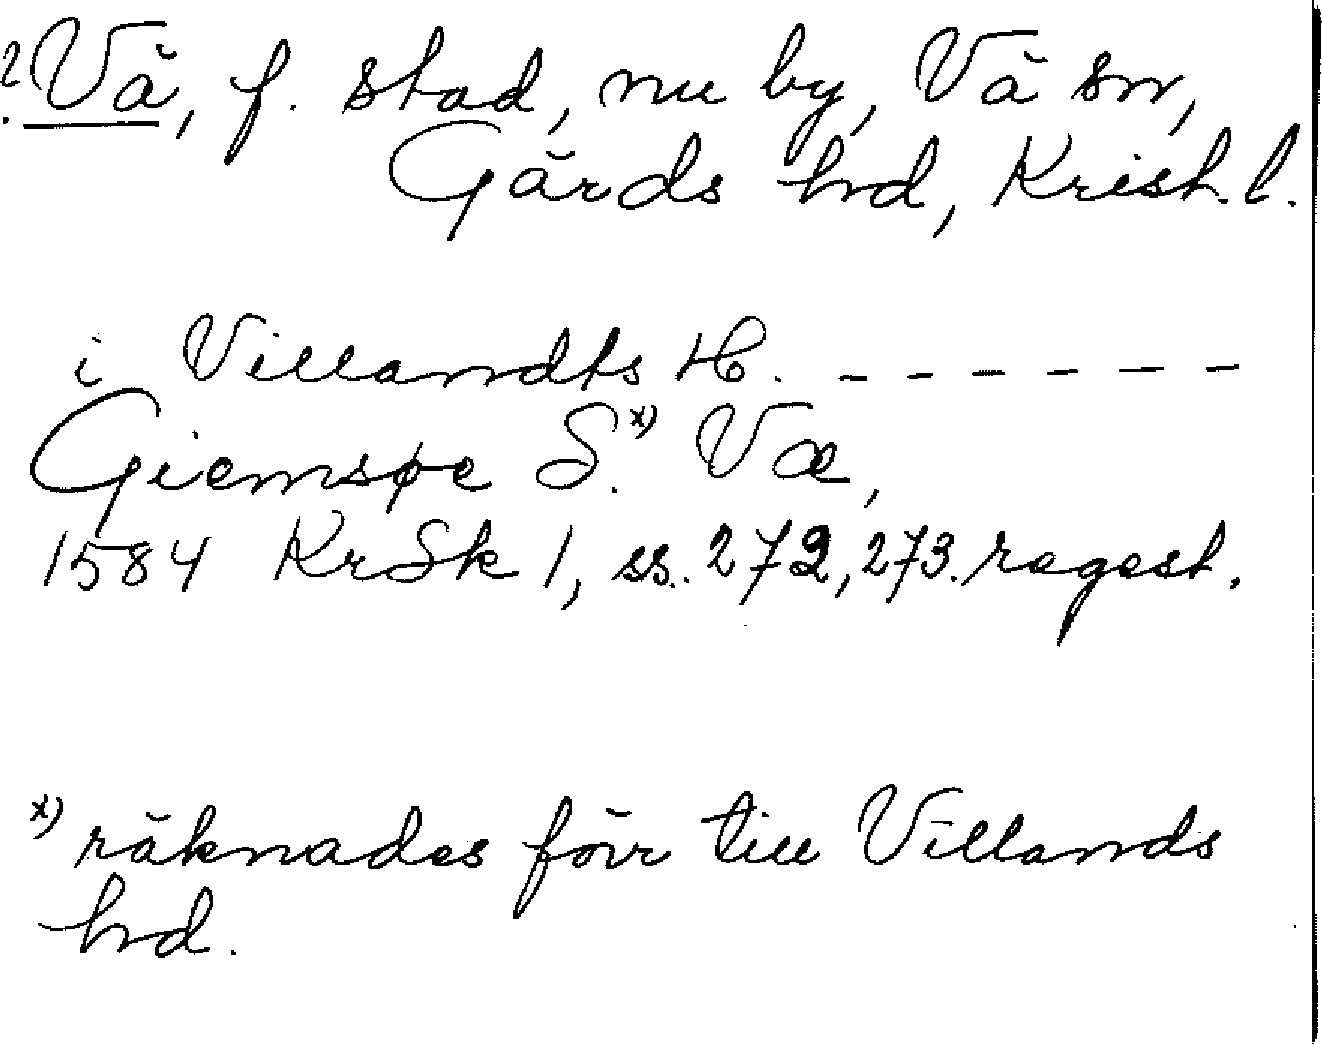 2. Vä, f. stad, nu by, Vä sn,
Gärds hd, Krist. l.
i Villandts H. - - - - - -
Giemsøe S.x) Væ,
1584 KrSk 1, ss. 272, 273. regest.
x) räknades förr till Villands
hd.